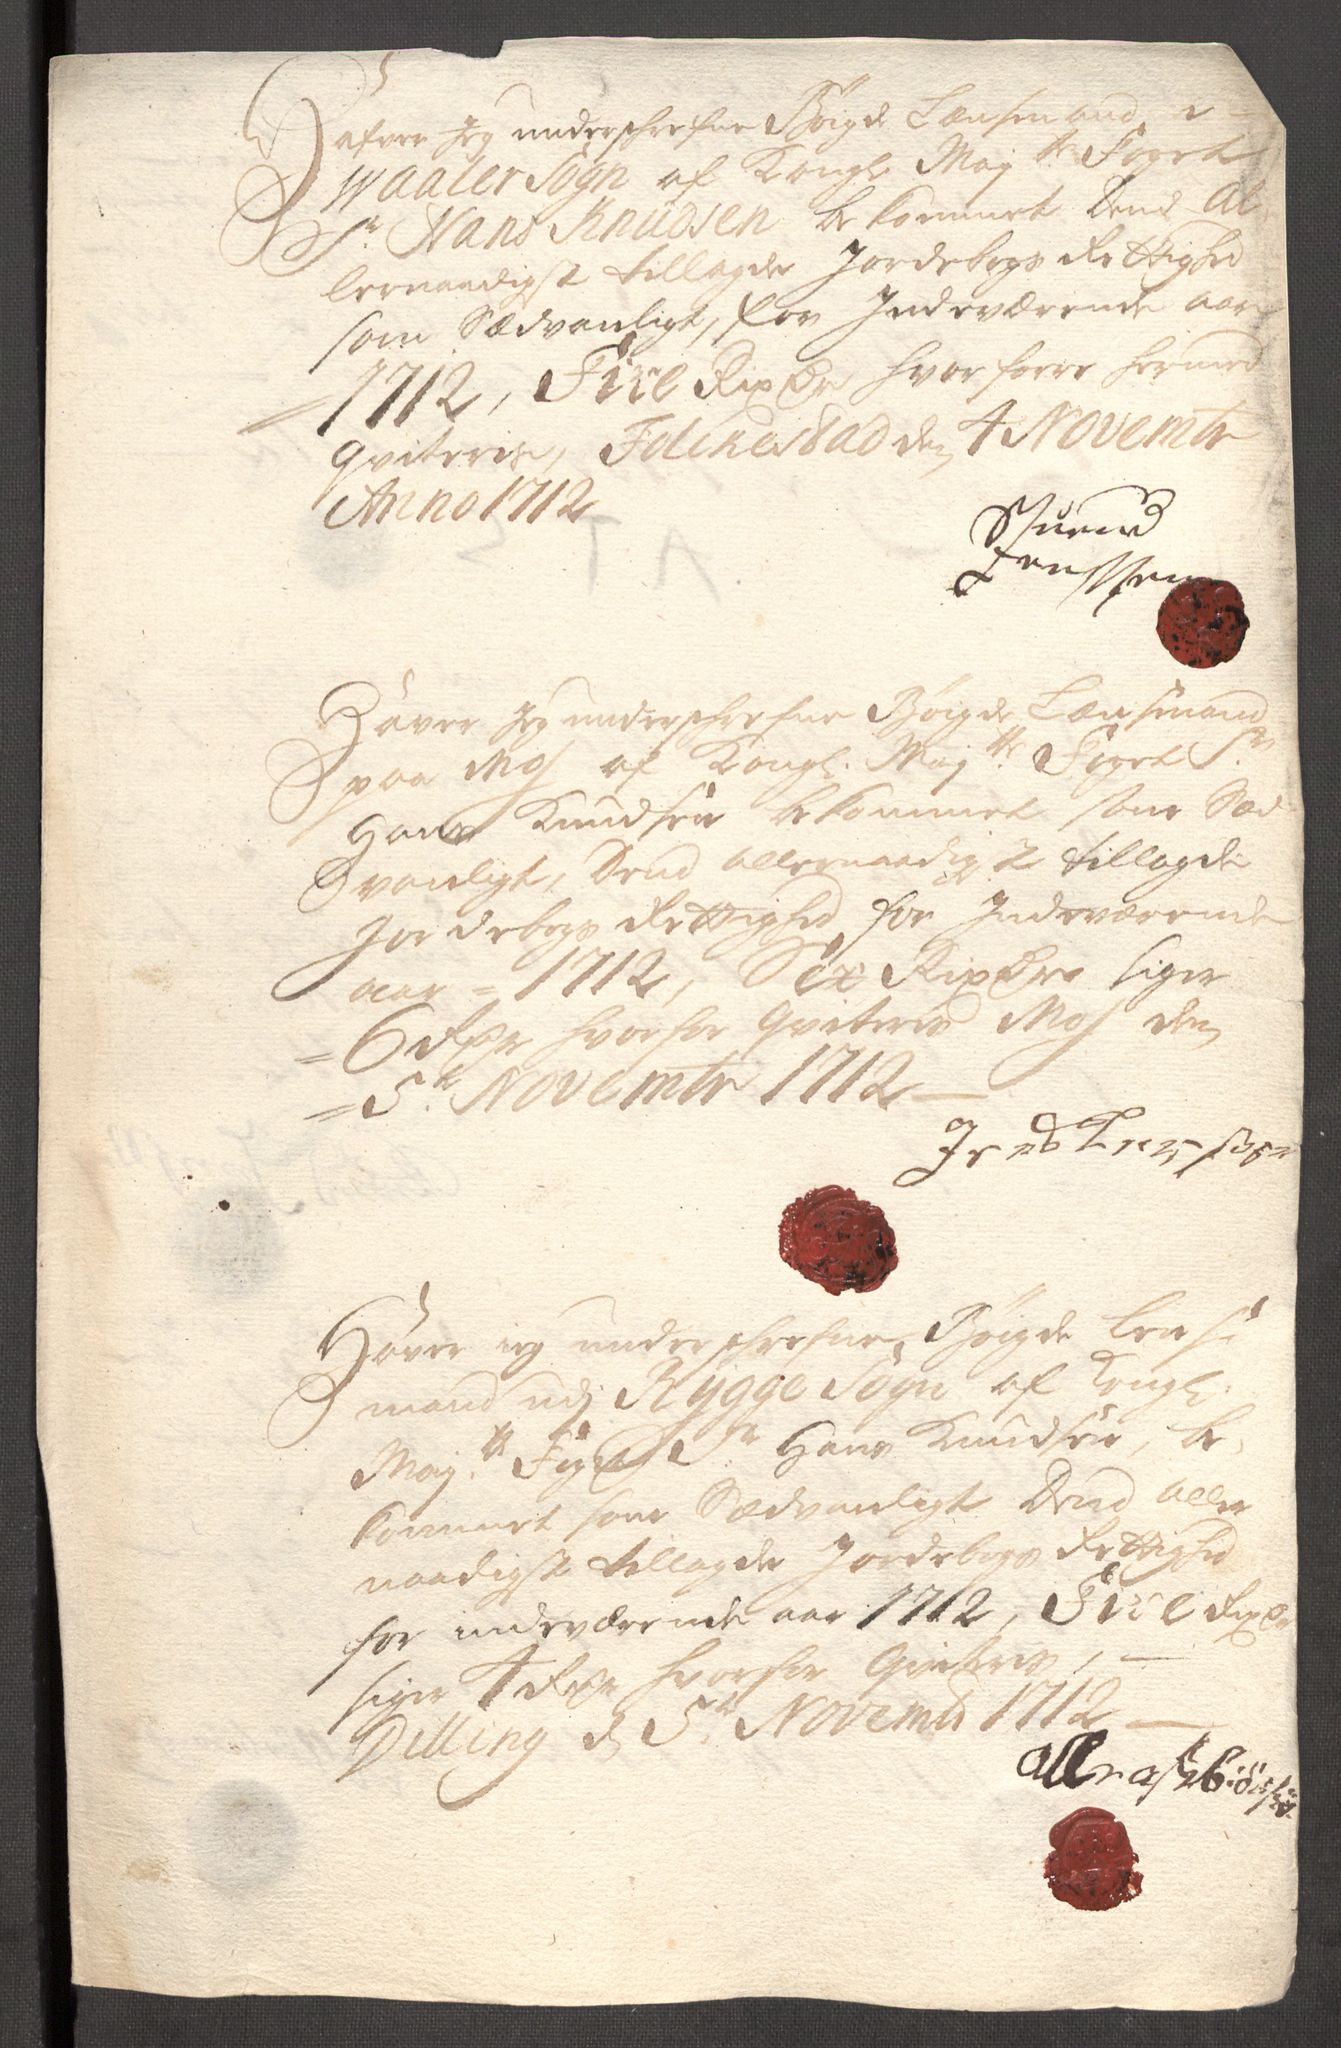 Hafver Jeg underschrefne Bøigde Lænsmand i
Waaler Sogn af Kongl: Maytz Foget
Sr Hans Knudsen bekommet Dend Al-
lernaadigst tillagde Jordebogs Rettighed
som Sædvanligt, for Indeværende aar
1712, Fire Rixdr hvorforre hermed
Qviteris, Folckestad den 4 Novembr
Anno 1712
Suend
Jenssen
Haver Jeg underschrefne Bøigde Lænsmand
paa Mos af Kongl: Maytz: Foget Sr
Hans Knudsen bekommet som Sæd-
vanligt, Dend allernaadigst tillagde
Jordebogs Rettighed for Indeværende
aar = 1712, Sex Rixdr siger
= 6 Rdr hvorfor Qviteris Mos den
= 5te Novembr 1712
Haver ieg underschrefne Bøigde Lens-
mand udj Rygge Sogn af Kongl:
Maytz Foget Sr Hans Knudsen, be-
kommet som Sædvanligt Dend aller
naadigst tillagde Jordebogs Rettighed
for indeværende aar 1712, Fire Rixdr
siger 4 Rdr hvorfor Qviteris,
Dilling d 5te Novemb 1712